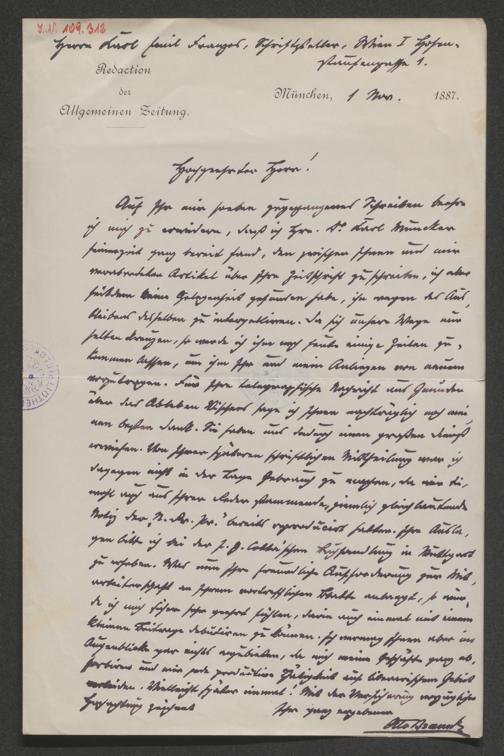 I.N. 109.318
Herrn Karl Emil Franzos, Schriftsteller, Wien I Hohen-
staufengasse 1.
Redaction
der
Allgemeinen Zeitung.
München, 1 Nov. 1887.
Hochgeehrter Herr!
Auf Ihr mir soeben zugegangenes Schreiben beehre
ich mich zu erwidern, daß ich Hrn. Dr. Karl Muncker
seinerzeit ganz bereit fand, den zwischen Ihnen und mir
verabredeten Artikel über Ihre Zeitschrift zu schreiben, ich aber
seitdem keine Gelegenheit gefunden habe, ihn wegen des Aus-
bleibens desselben zu interpelliren. Da sich unsere Wege nur
selten kreuzen, so werde ich ihm noch heute einige Zeilen zu-
kommen lassen, um ihm Ihr und mein Anliegen von neuem
vorzutragen. Für Ihre telegraphische Nachricht aus Gmunden
über das Ableben Vischers sage ich Ihnen nachträglich noch mei-
nen besten Dank. Sie haben uns dadurch einen großen Dienst
erwiesen. Von Ihrer späteren schriftlichen Mittheilung war ich
dagegen nicht in der Lage Gebrauch zu machen, da wir die,
auch aus Ihrer Feder stammende, ziemlich gleichlautende
Notiz der "N. Fr. Pr." bereits reproducirt hatten. Ihre Ausla-
gen bitte ich bei der J. G. Cotta'schen Buchhandlung in Stuttgart
zu erheben. Was nun Ihre freundliche Aufforderung zur Mit-
arbeiterschaft an Ihrem vortrefflichen Blatte anlangt, so wür-
de ich mich sicher sehr geehrt fühlen, darin auch einmal mit einem
kleinen Beitrage debütiren zu können. Ich vermag Ihnen aber im
Augenblicke gar nichts anzubieten, da mich meine Geschäfte ganz ab-
sorbiren und mir jede productive Thätigkeit auf literarischem Gebiet
verbieten. Vielleicht später einmal! Mit der Versicherung vorzüglicher
Hochachtung zeichnet Ihr ganz ergebener
Otto Braun